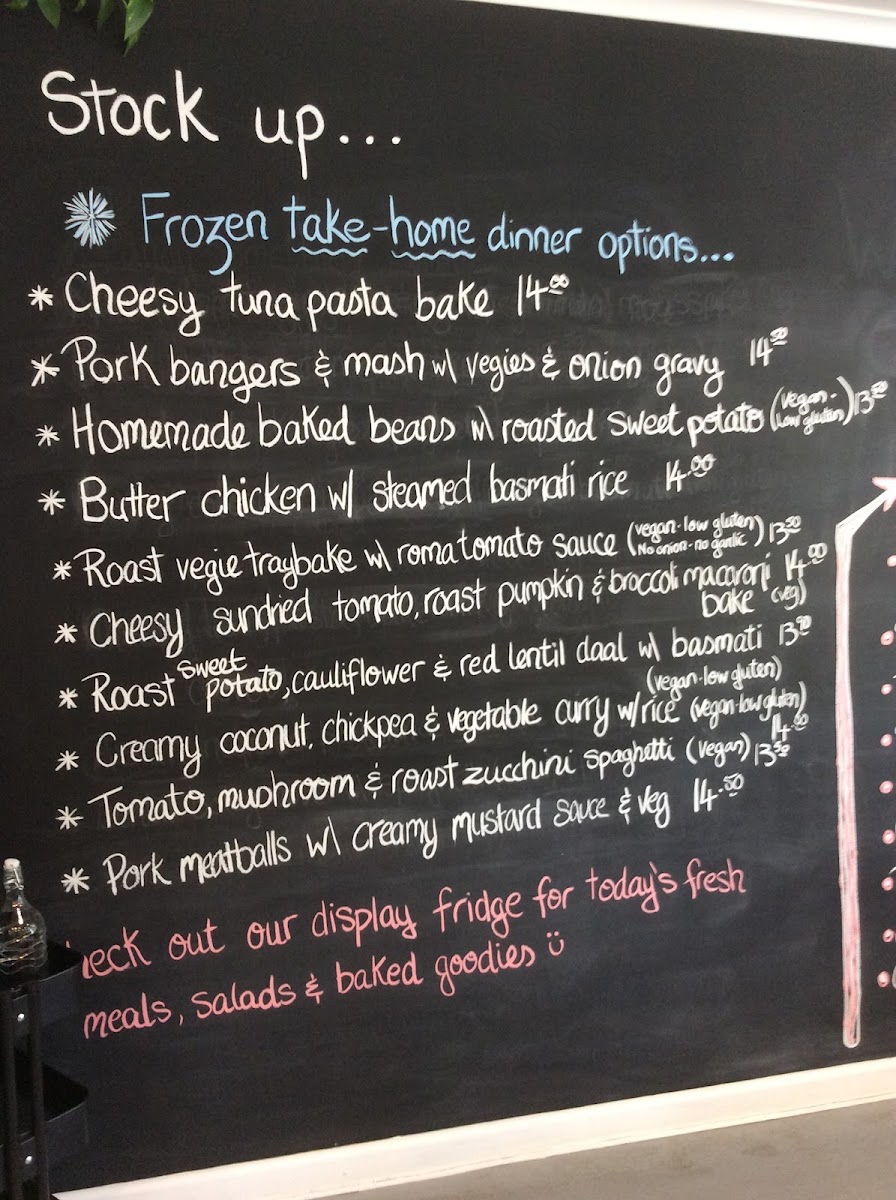 Stock up...
Frozen take-home dinner options...
* Cheesy tuna pasta bake 14.00
* Pork bangers & mash w/ vegies & onion gravy 14.50
* Homemade baked beans w/ roasted sweet potato (vegan-low gluten) 13.50
* Butter chicken w/ steamed basmati rice 14.00
* Roast vegie traybake w/ roma tomato sauce (vegan-low gluten No onion-no garlic) 13.50
* Cheesy sundried tomato, roast pumpkin & broccoli macaroni 14.00
bake (veg)
* Roast sweet potato, cauliflower & red lentil daal w/ basmati 13.90
(vegan-low gluten)
* Creamy coconut, chickpea & vegetable curry w/ rice (vegan-low gluten)
14.00
* Tomato, mushroom & roast zucchini spaghetti (vegan) 13.50
* Pork meatballs w/ creamy mustard sauce & veg 14.50
heck out our display fridge for today's fresh
meals, salads & baked goodies